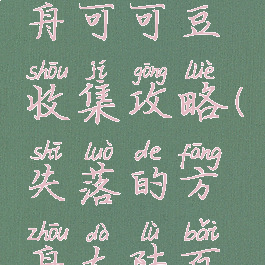 舟可可豆
shōu jí gōng lüè
收集攻略(
shī luò de fāng
失落的方
zhōu dà lù bǎi
舟大陆百